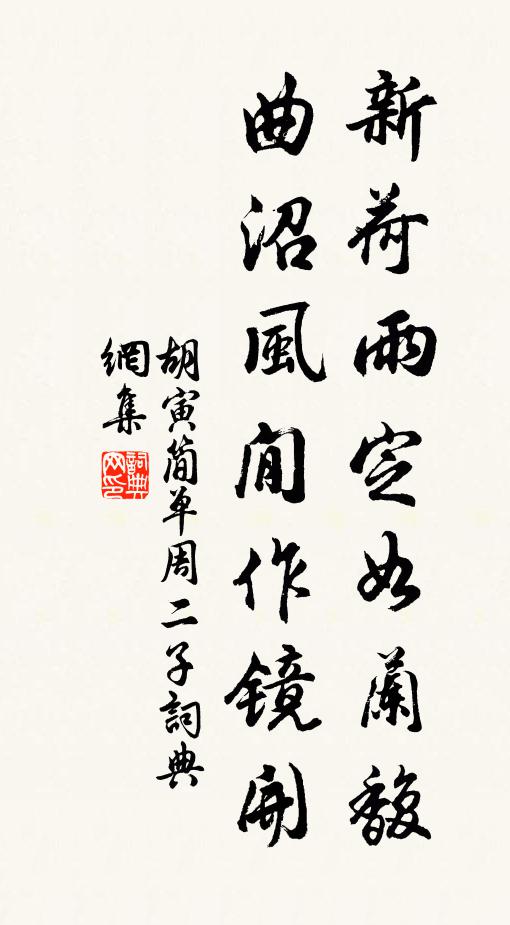 新荷雨定如蘭馥
曲沼風閒作鏡開
胡寅簡单周二子詞典
網集
詞典网印